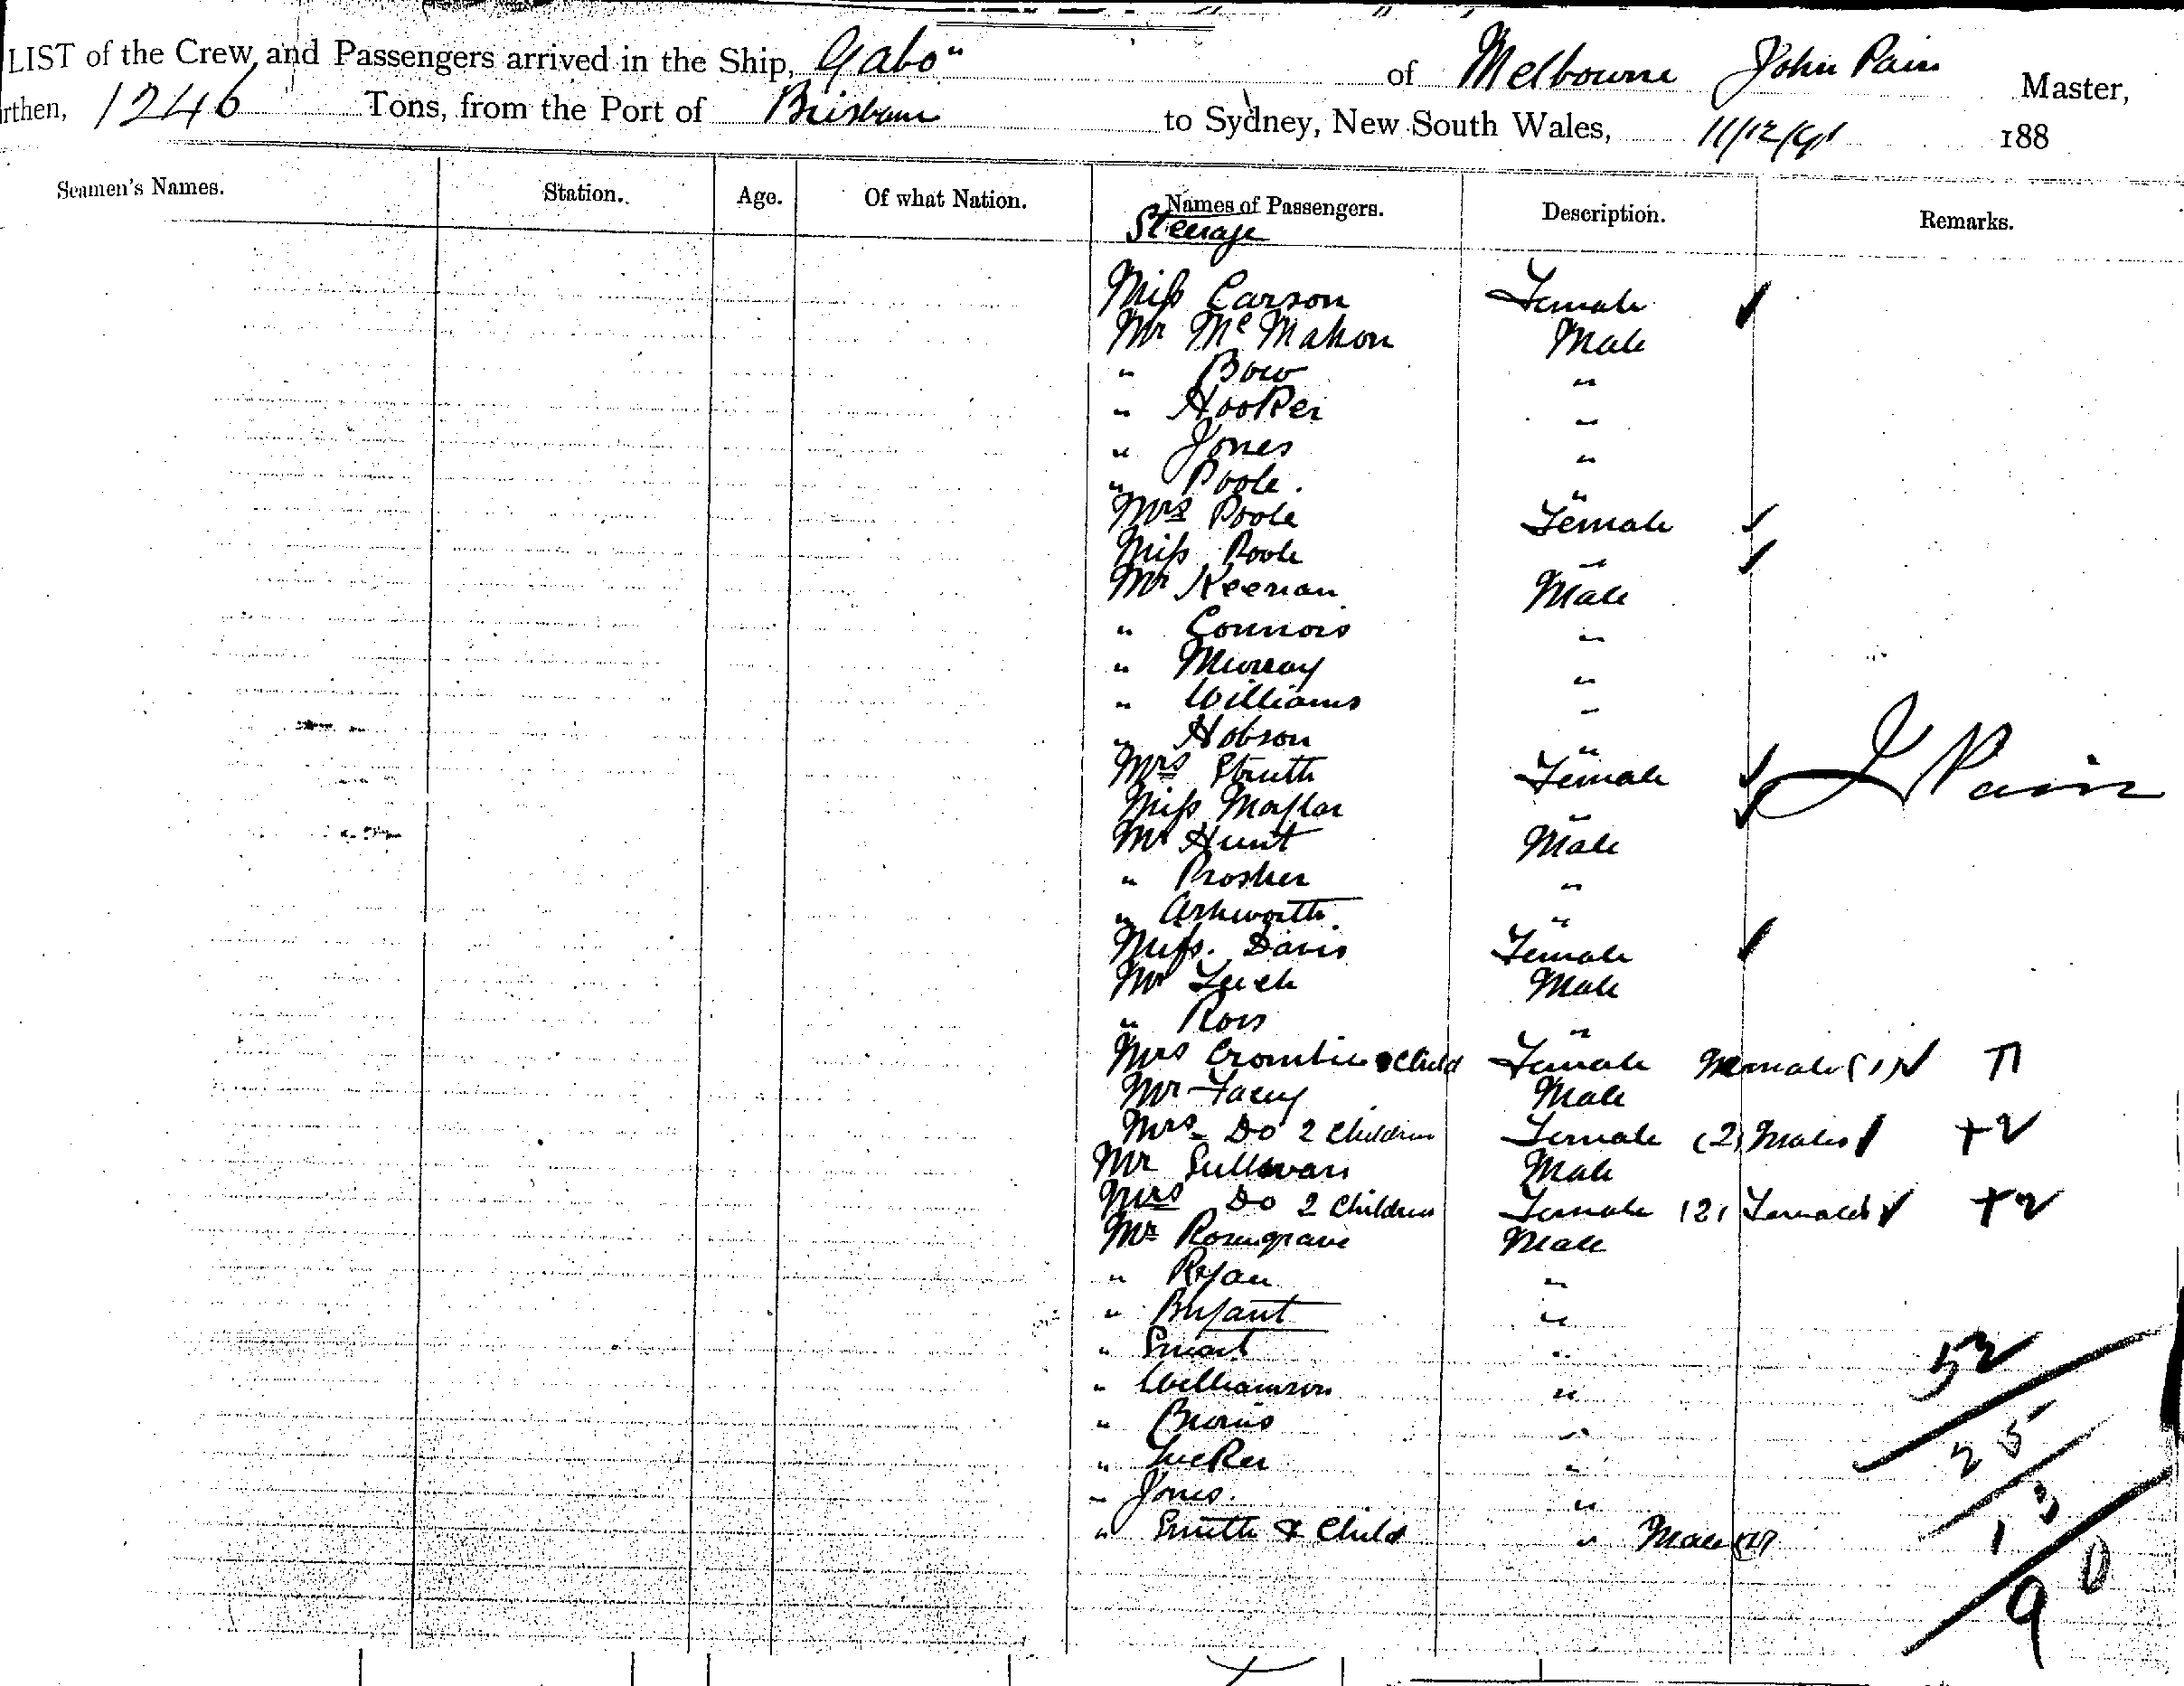 LIST of the Crew and Passengers arrived in the Ship, Gabo" of Melbourne John Pain Master,
rthen, 1246 Tons, from the Port of Brisbane to Sydney, New South Wales, 11/12/91 188
Seamen's Names. Station. Age. Of what Nation. Names of Passengers. Description. Remarks.
Steerage
Miss Carson Female ✓
Mr McMahon Male
" Bow "
" Hooker "
" Jones "
" Poole. "
Mrs Poole Female ✓
Miss Poole " ✓
Mr Keenan Male
" Connors "
" Murray "
" Williams "
" Hobson "
Mrs Struth Female ✓
Miss Female ✓
J Pain
Mr Hunt Male
" Prosher "
" Ashworth "
Miss. Davis Female ✓
Mr Male
" Ross "
Mrs Crombie & Child Female (1) ✓
Mr Facey Male
Mrs Do 2 Children Female (2) Males ✓ +2
Mr Sullivan Male
Mrs Do 2 Children Female (2) Females ✓ +2
Mr Rosengrave Male
" Ryan "
" Bryant "
" Smart "
" Williamson "
" Burns "
" Tucker "
" Jones. "
" Smith & Child " Male
52
25
13
90